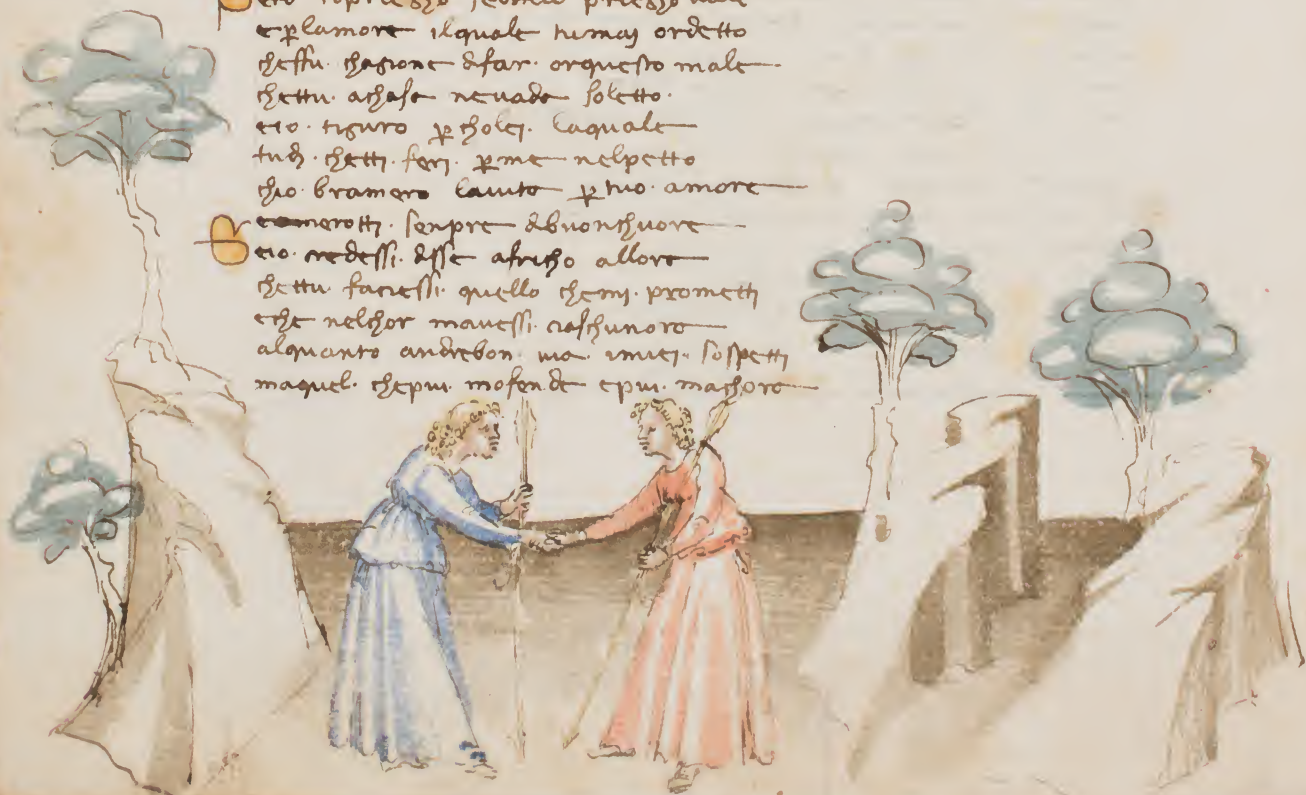 e p lamore ilquale tumai ordetto
cheffu chagione difar orquesto male
chettu achasa nevada soletto
eio tiguro p cholei laquale
tudi chetti feri p me nelpetto
chio bramero lavita p tuo amore
tti senpre dibuonchuore
Seio credessi disse africho allora
chettu faciessi quello chemi prometti
eche nelchor mavessi ciaschunora
alquanto andrebon via imiei sospetti
maquel chepiu mofende epiu machora